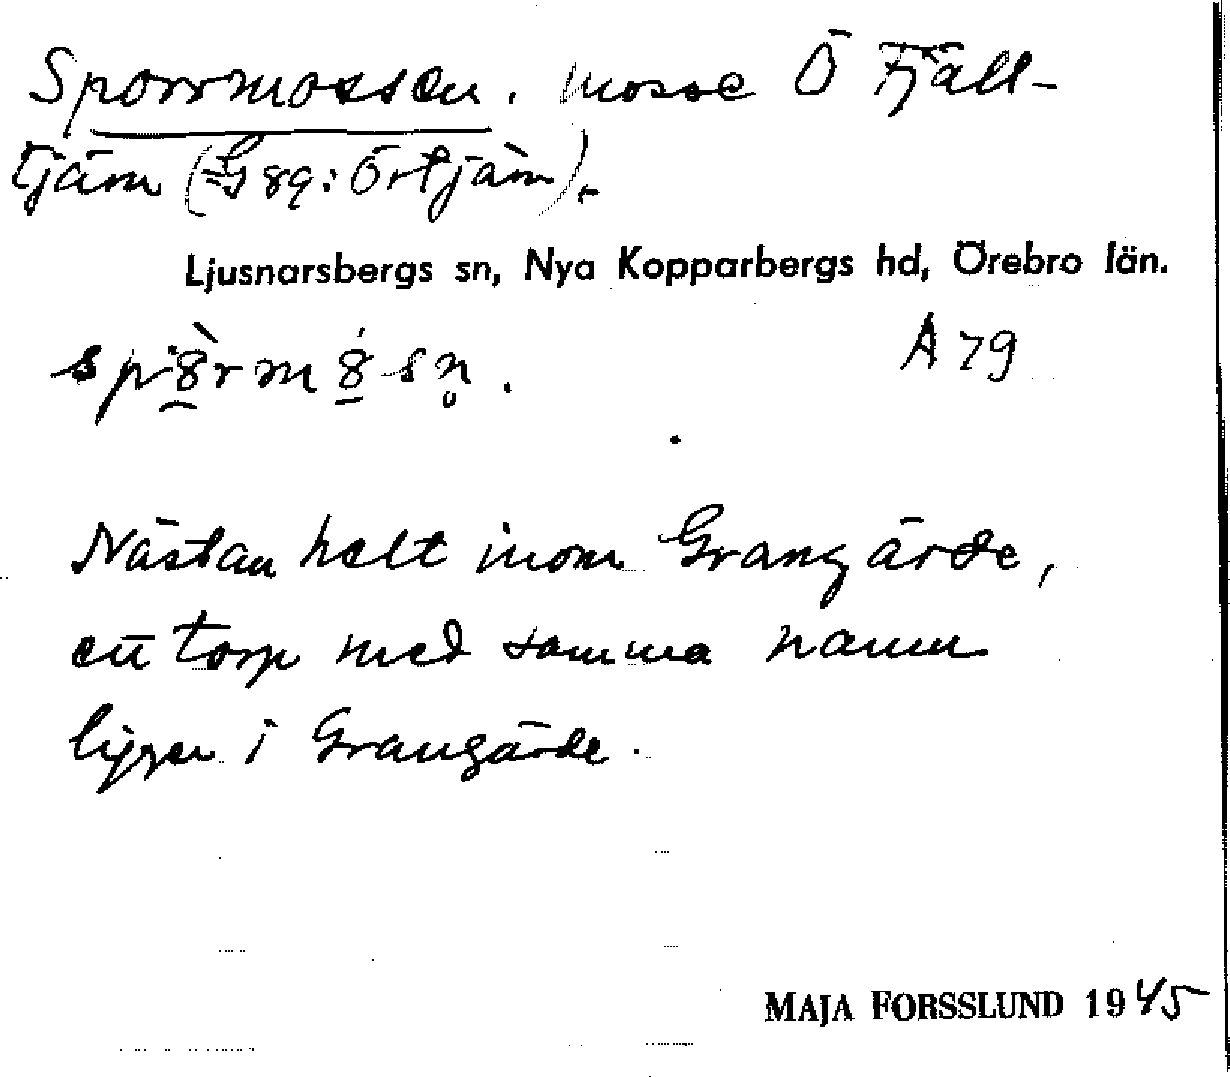 Sporrmossen. mosse Ö Fjäll-
tjärn (G 89: Örtjärn).
Ljusnarsbergs sn, Nya Kopparbergs hd, Örebro län.
A 79
Nästan helt inom Grangärde,
ett torp med samma namn
ligger i Grangärde.
MAJA FORSSLUND 1945